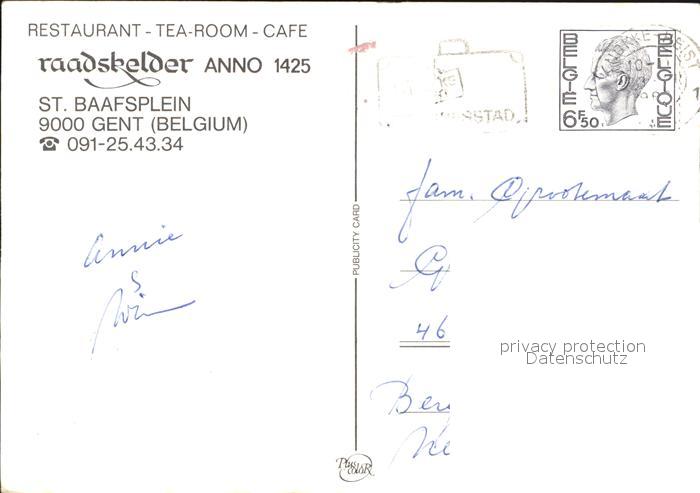 RESTAURANT - TEA-ROOM - CAFE
raadskelder ANNO 1425
ST. BAAFSPLEIN
9000 GENT (BELGIUM)
☎ 091-25.43.34
Annie
&
Wim
PUBLICITY CARD
Plus colo​R
BELGIË BELGIQUE
6F50
10-
Fam. Grootemaat
46
privacy protection
Datenschutz